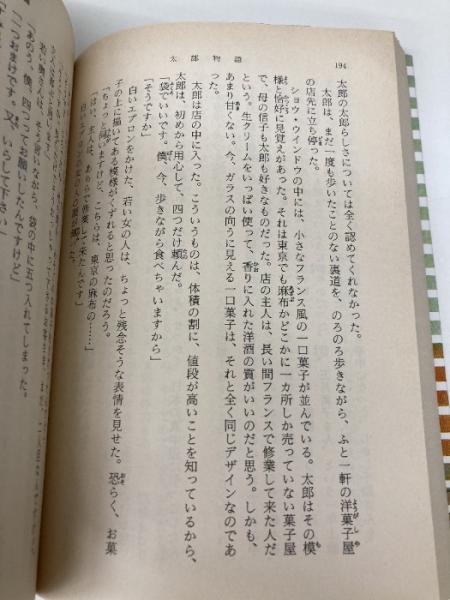 194
太郎物語
太郎の太郎らしさについては全く認めてくれなかった。
太郎は、まだ一度も歩いたことのない裏道を、のろのろ歩きながら、ふと一軒の洋菓子屋
の店先に立ち停った。
ショウ・ウインドウの中には、小さなフランス風の一口菓子が並んでいる。太郎はその模
様と恰好に見覚えがあった。それは東京でも麻布かどこかに一カ所しか売っていない菓子屋
で、母の信子も太郎も好きなものだった。店の主人は、長い間フランスで修業して来た人だ
という。生クリームをいっぱい使って、香りに入れた洋酒の質がいいのだと思う。しかも、
あまり甘くない。今、ガラスの向うに見える一口菓子は、それと全く同じデザインなのであ
る。
太郎は店の中に入った。こういうものは、体積の割に、値段が高いことを知っているから、
太郎は、初めから用心して、四つだけ頼んだ。
「袋でいいです。僕、今、歩きながら食べちゃいますから」
「そうですか」
白いエプロンをかけた、若い女の人は、ちょっと残念そうな表情を見せた。恐らく、お菓
子の上に描いてある模様がくずれると思ったのだろう。
「ちょっと伺いますけど、こちらは、東京の麻布の……」
「はい、主人は、あちらで修業して来たんです」
そう言いながら、袋の中に五つ入れてしまった。
「あのう、僕、四つってお願いしたんですけど」
「一つおまけです。又、いらして下さい」